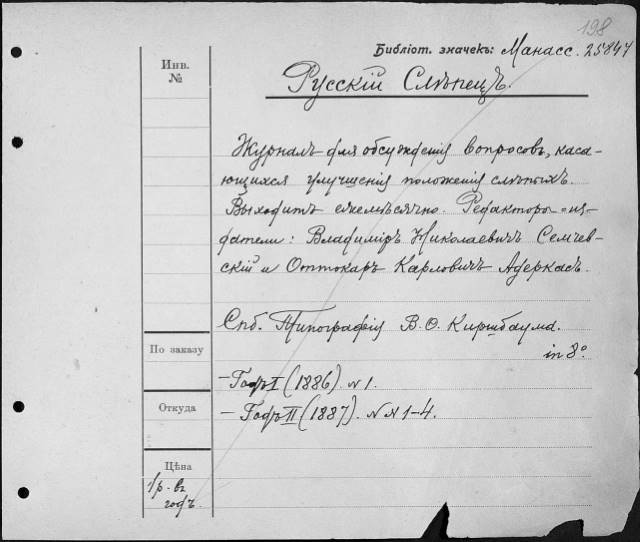 198
Библіот. значекъ: Манасс. 25847
Инв.
№
Русскій Слѣпецъ.
Журналъ для обсужденія вопросовъ, каса-
ющихся улучшенія положенія слѣпыхъ.
Выходитъ ежемѣсячно. Редакторы-из-
датели: Владиміръ Николаевичъ Семчев-
скій и Оттокаръ Карловичъ Адеркасъ.
Спб. Типографія В. Ѳ. Киршбаума.
in 8º
По заказу
— Годъ I (1886). N 1.
Откуда
— Годъ II (1887). N N 1-4.
Цѣна
1 р. въ
годъ.